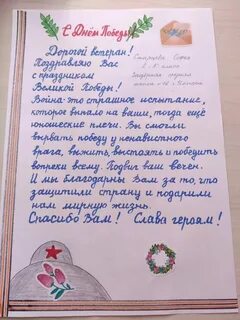 С Днём Победы!
Дорогой ветеран!
Поздравляю Вас
с праздником
Великой Победы!
Война-это страшное испытание,
которое выпало на ваши, тогда ещё
юношеские плечи. Вы смогли
вырвать победу у ненавистного
врага, выжить, выстоять и победить
вопреки всему. Подвиг ваш вечен.
И мы благодарны Вам за то, что
защитили страну и подарили
нам мирную жизнь.
Спасибо Вам! Слава героям!